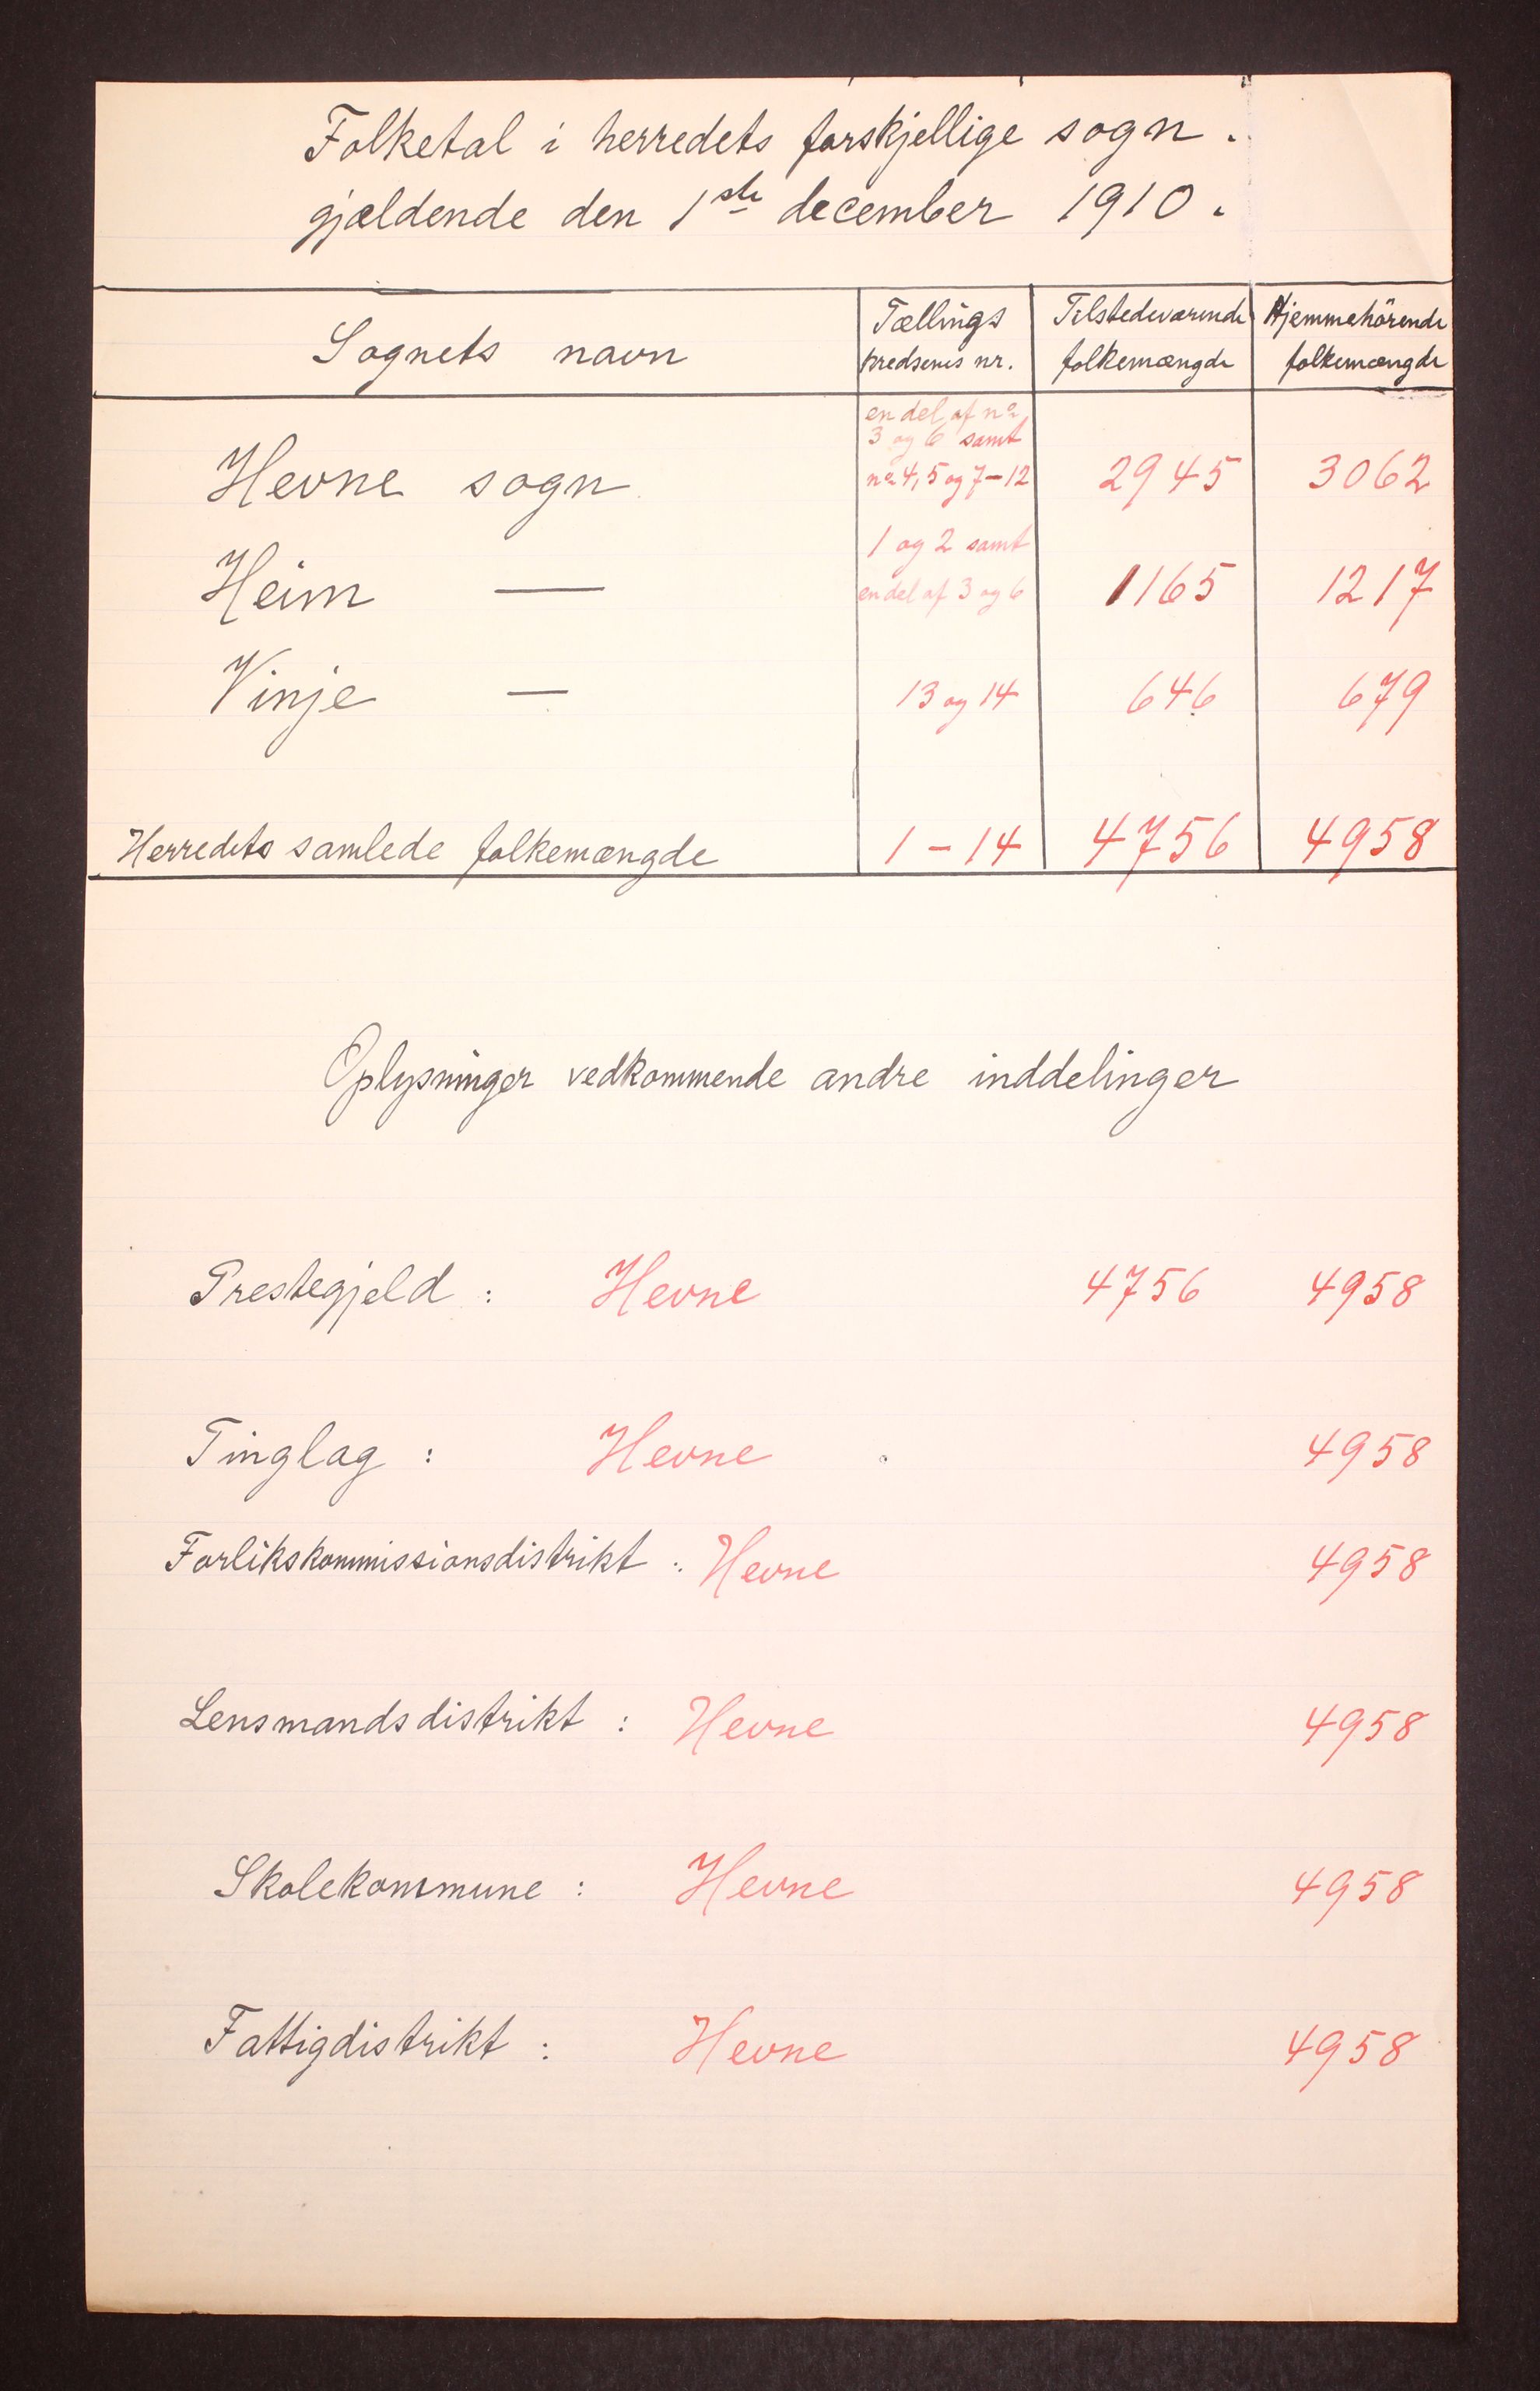 Folketal i herredets forskjellige sogn.
gjældende den 1ste december 1910.
Sognets navn Tællings Tilstedeværende Hjemmehörende
kredsenes nr. folkemængde folkemængde
en del af no
3 og 6 samt
Hevne sogn no 4, 5 og 7-12 2945 3062
1 og 2 samt
Heim — en del af 3 og 6 1165 1217
Vinje — 13 og 14 646 679
Herredets samlede folkemængde 1-14 4756 4958
Oplysninger vedkommende andre inddelinger
Prestegjeld : Hevne 4756 4958
Tinglag : Hevne 4958
Forlikskommissionsdistrikt : Hevne 4958
Lensmandsdistrikt : Hevne 4958
Skolekommune : Hevne 4958
Fattigdistrikt : Hevne 4958